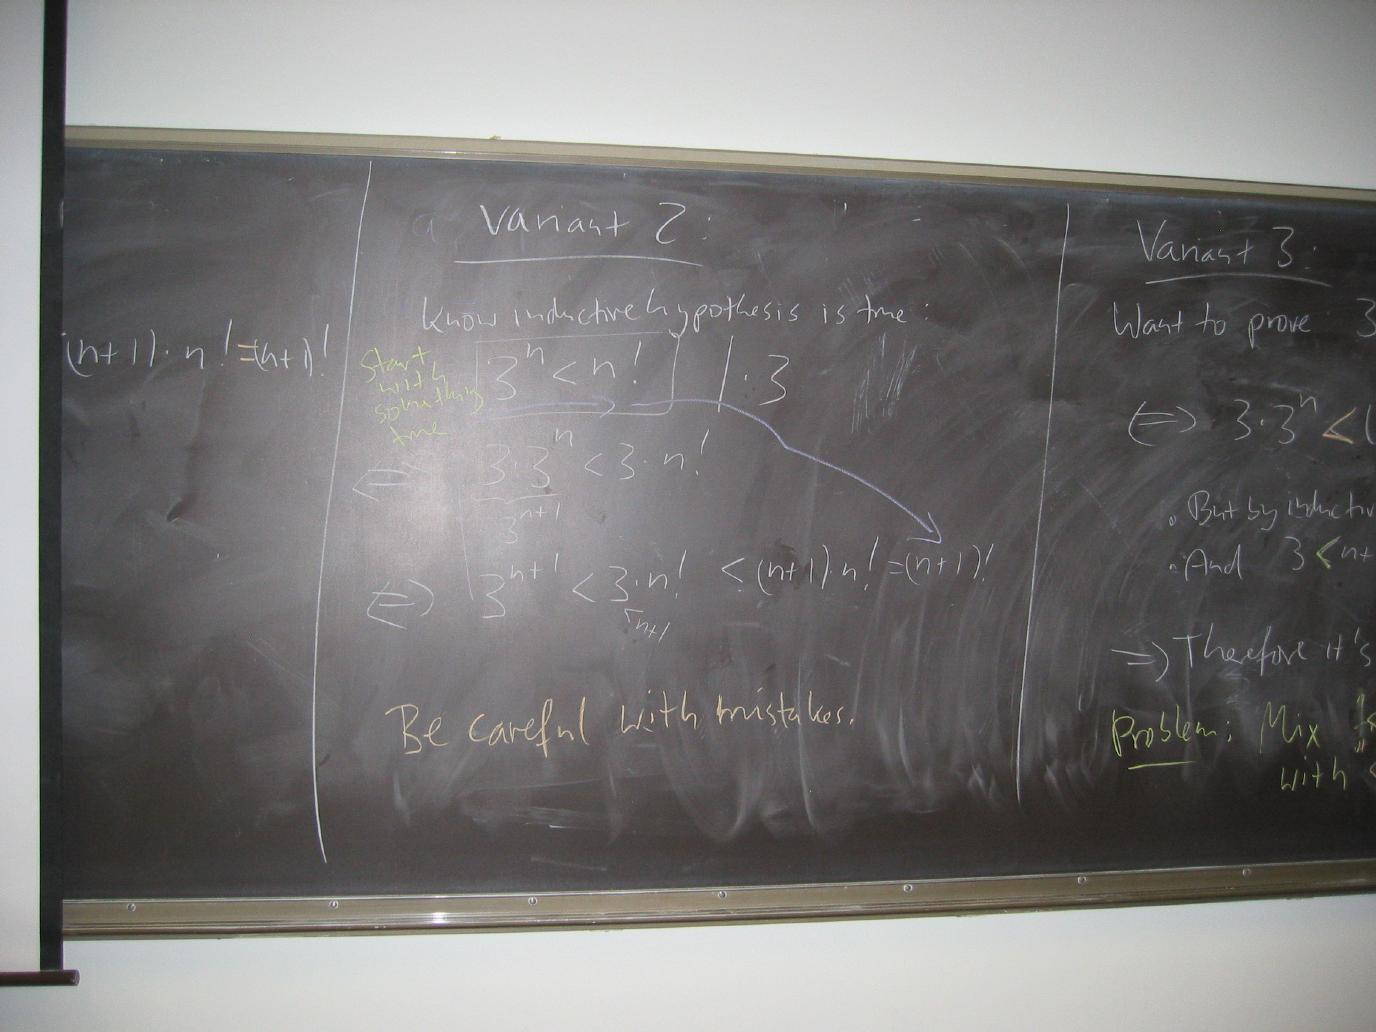 (n+1) · n! = (n+1)!
Variant 2:
Know inductive hypothesis is true:
Start
with
something
true
3ⁿ < n! | · 3
⇔ 3·3ⁿ < 3·n!
3ⁿ⁺¹
⇔ 3ⁿ⁺¹ < 3·n! < (n+1)·n! = (n+1)!
< n+1
Be careful with mistakes.
Variant 3:
Want to prove 3
⇔ 3·3ⁿ < (
. But by inductiv
. And 3 < n+
⇒ Therefore it's
Problem: Mix
with <